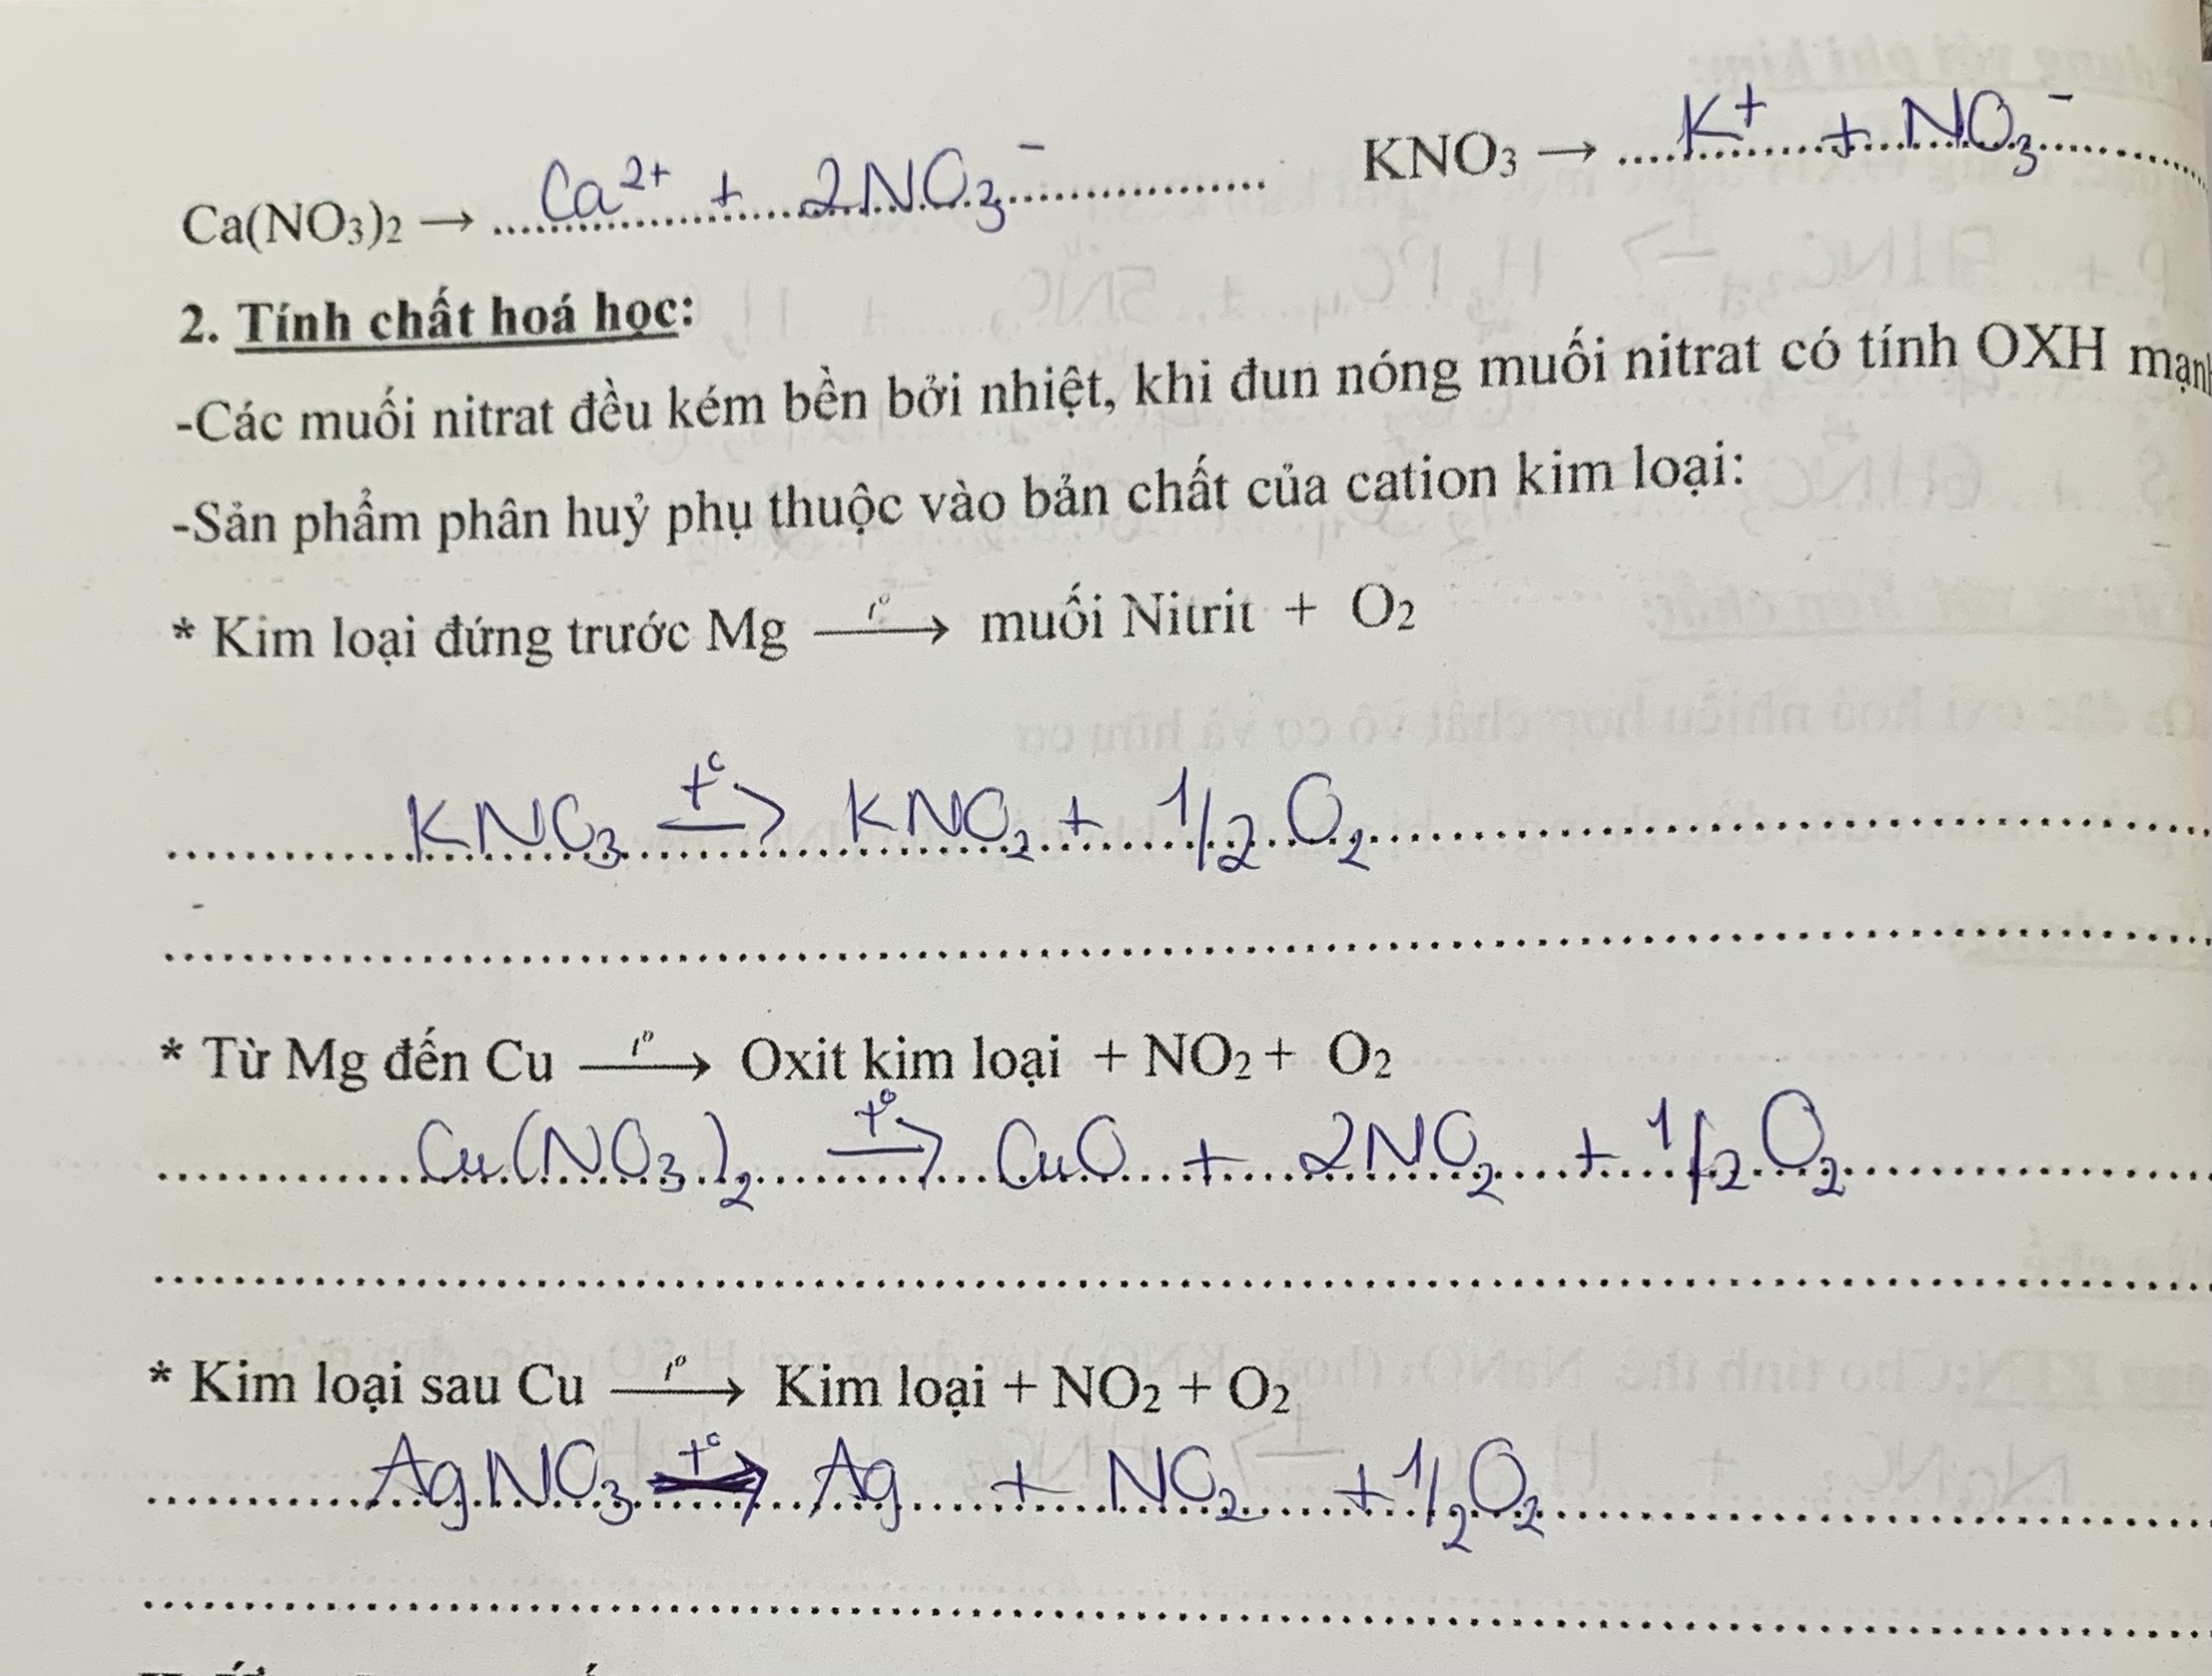 Ca(NO3)2 → Ca²⁺ + 2NO3⁻ KNO3 → K⁺ + NO3⁻
2. Tính chất hoá học:
-Các muối nitrat đều kém bền bởi nhiệt, khi đun nóng muối nitrat có tính OXH
-Sản phẩm phân huỷ phụ thuộc vào bản chất của cation kim loại:
* Kim loại đứng trước Mg —t°→ muối Nitrit + O2
KNO3 —t°→ KNO2 + 1/2 O2
* Từ Mg đến Cu —t°→ Oxit kim loại + NO2 + O2
Cu(NO3)2 —t°→ CuO + 2NO2 + 1/2 O2
* Kim loại sau Cu —t°→ Kim loại + NO2 + O2
AgNO3 —t°→ Ag + NO2 + 1/2 O2